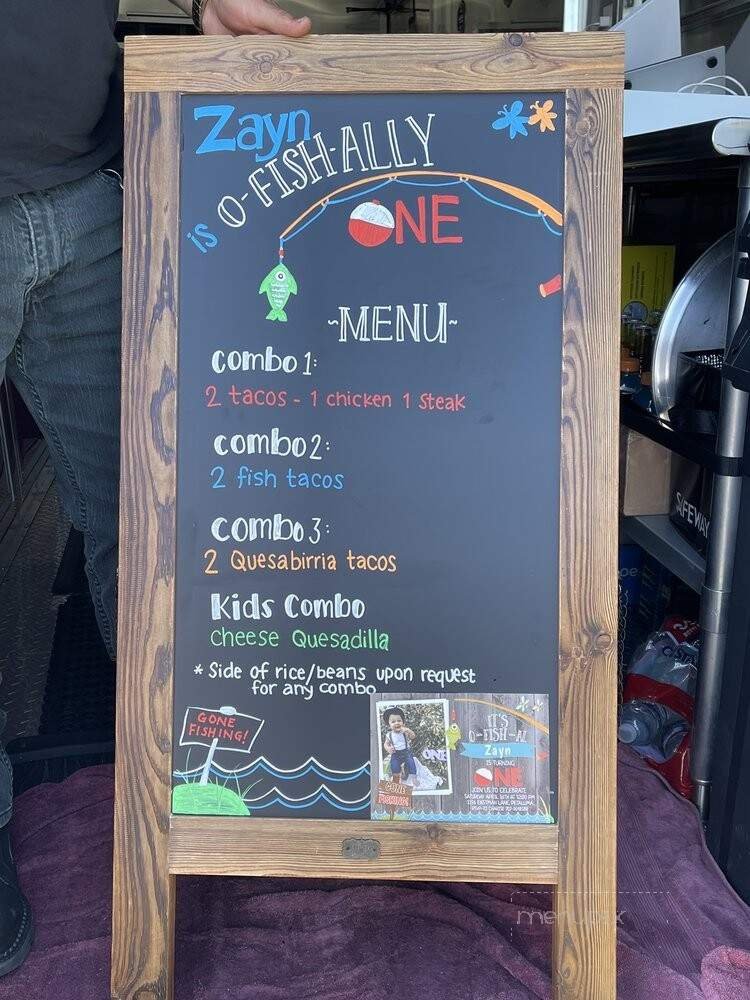 Zayn
is O-FISH-ALLY
ONE
~MENU~
combo 1:
2 tacos - 1 chicken 1 steak
combo 2:
2 fish tacos
combo 3:
2 Quesabirria tacos
Kids Combo
cheese Quesadilla
* Side of rice/beans upon request
for any combo
GONE
FISHING!
IT'S
O-FISH-AL
Zayn
IS TURNING
ONE
JOIN US TO CELEBRATE
ONE
GONE
FISHING!
SAFEWAY
menupix